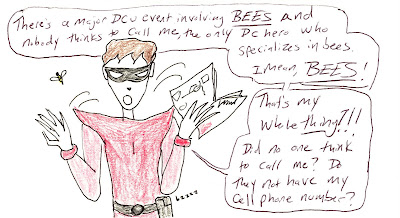 There's a major DCU event involving BEES and
nobody thinks to call me, the only DC hero who
specializes in bees.
I mean, BEES!
That's my
whole thing!!!
Did no one think
to call me? Do
they not have my
cell phone number?
bzzzz